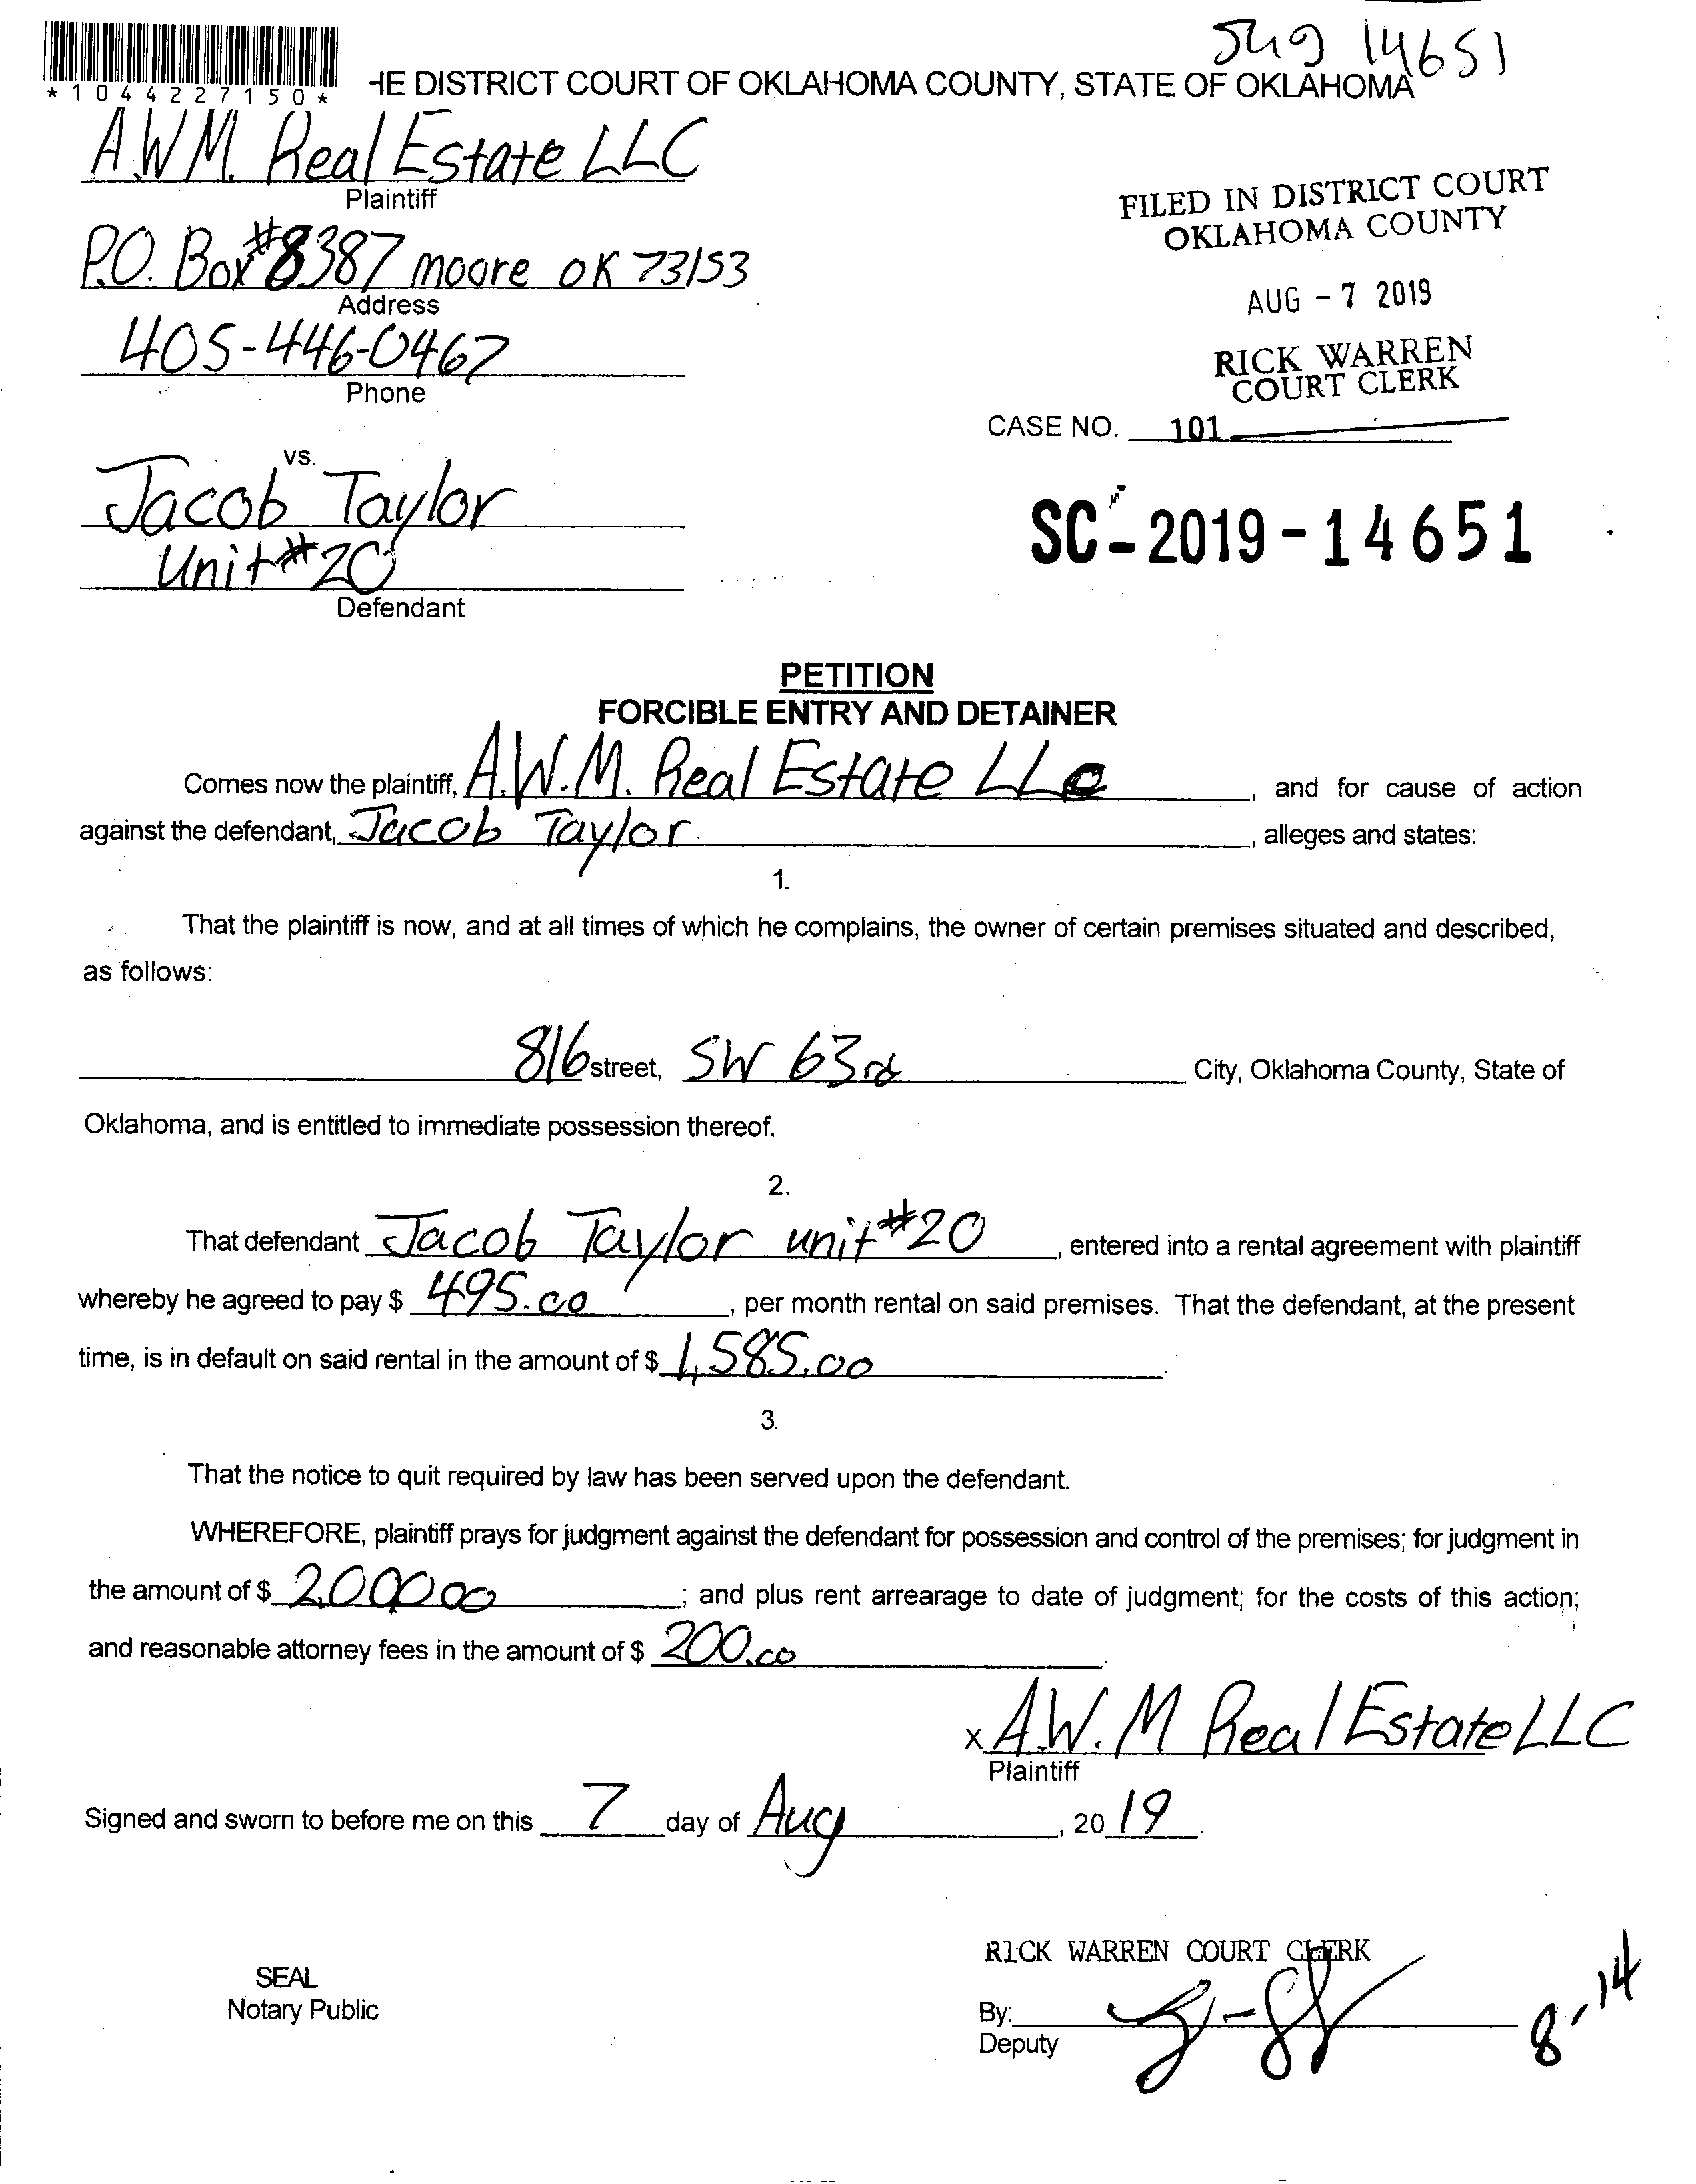 14651
*1044227150*
HE DISTRICT COURT OF OKLAHOMA COUNTY, STATE OF OKLAHOMA
A.W.M. Real Estate LLC
Plaintiff
P.O. Box #8387 moore OK 73153
Address
405-446-0467
Phone
FILED IN DISTRICT COURT
OKLAHOMA COUNTY
AUG - 7 2019
RICK WARREN
COURT CLERK
CASE NO. 101
vs.
Jacob Taylor
Unit #20
Defendant
SC-2019-14651
PETITION
FORCIBLE ENTRY AND DETAINER
Comes now the plaintiff, A.W.M. Real Estate LLC, and for cause of action
against the defendant, Jacob Taylor, alleges and states:
1.
That the plaintiff is now, and at all times of which he complains, the owner of certain premises situated and described,
as follows:
816 street, SW 63rd City, Oklahoma County, State of
Oklahoma, and is entitled to immediate possession thereof.
2.
That defendant Jacob Taylor unit #20, entered into a rental agreement with plaintiff
whereby he agreed to pay $ 495.00, per month rental on said premises. That the defendant, at the present
time, is in default on said rental in the amount of $ 1,585.00.
3.
That the notice to quit required by law has been served upon the defendant.
WHEREFORE, plaintiff prays for judgment against the defendant for possession and control of the premises; for judgment in
the amount of $ 2,000 00; and plus rent arrearage to date of judgment; for the costs of this action;
and reasonable attorney fees in the amount of $ 200.00.
x A.W.M Real Estate LLC
Plaintiff
Signed and sworn to before me on this 7 day of Aug, 20 19.
SEAL
Notary Public
RICK WARREN COURT CLERK
By:
Deputy
8-14